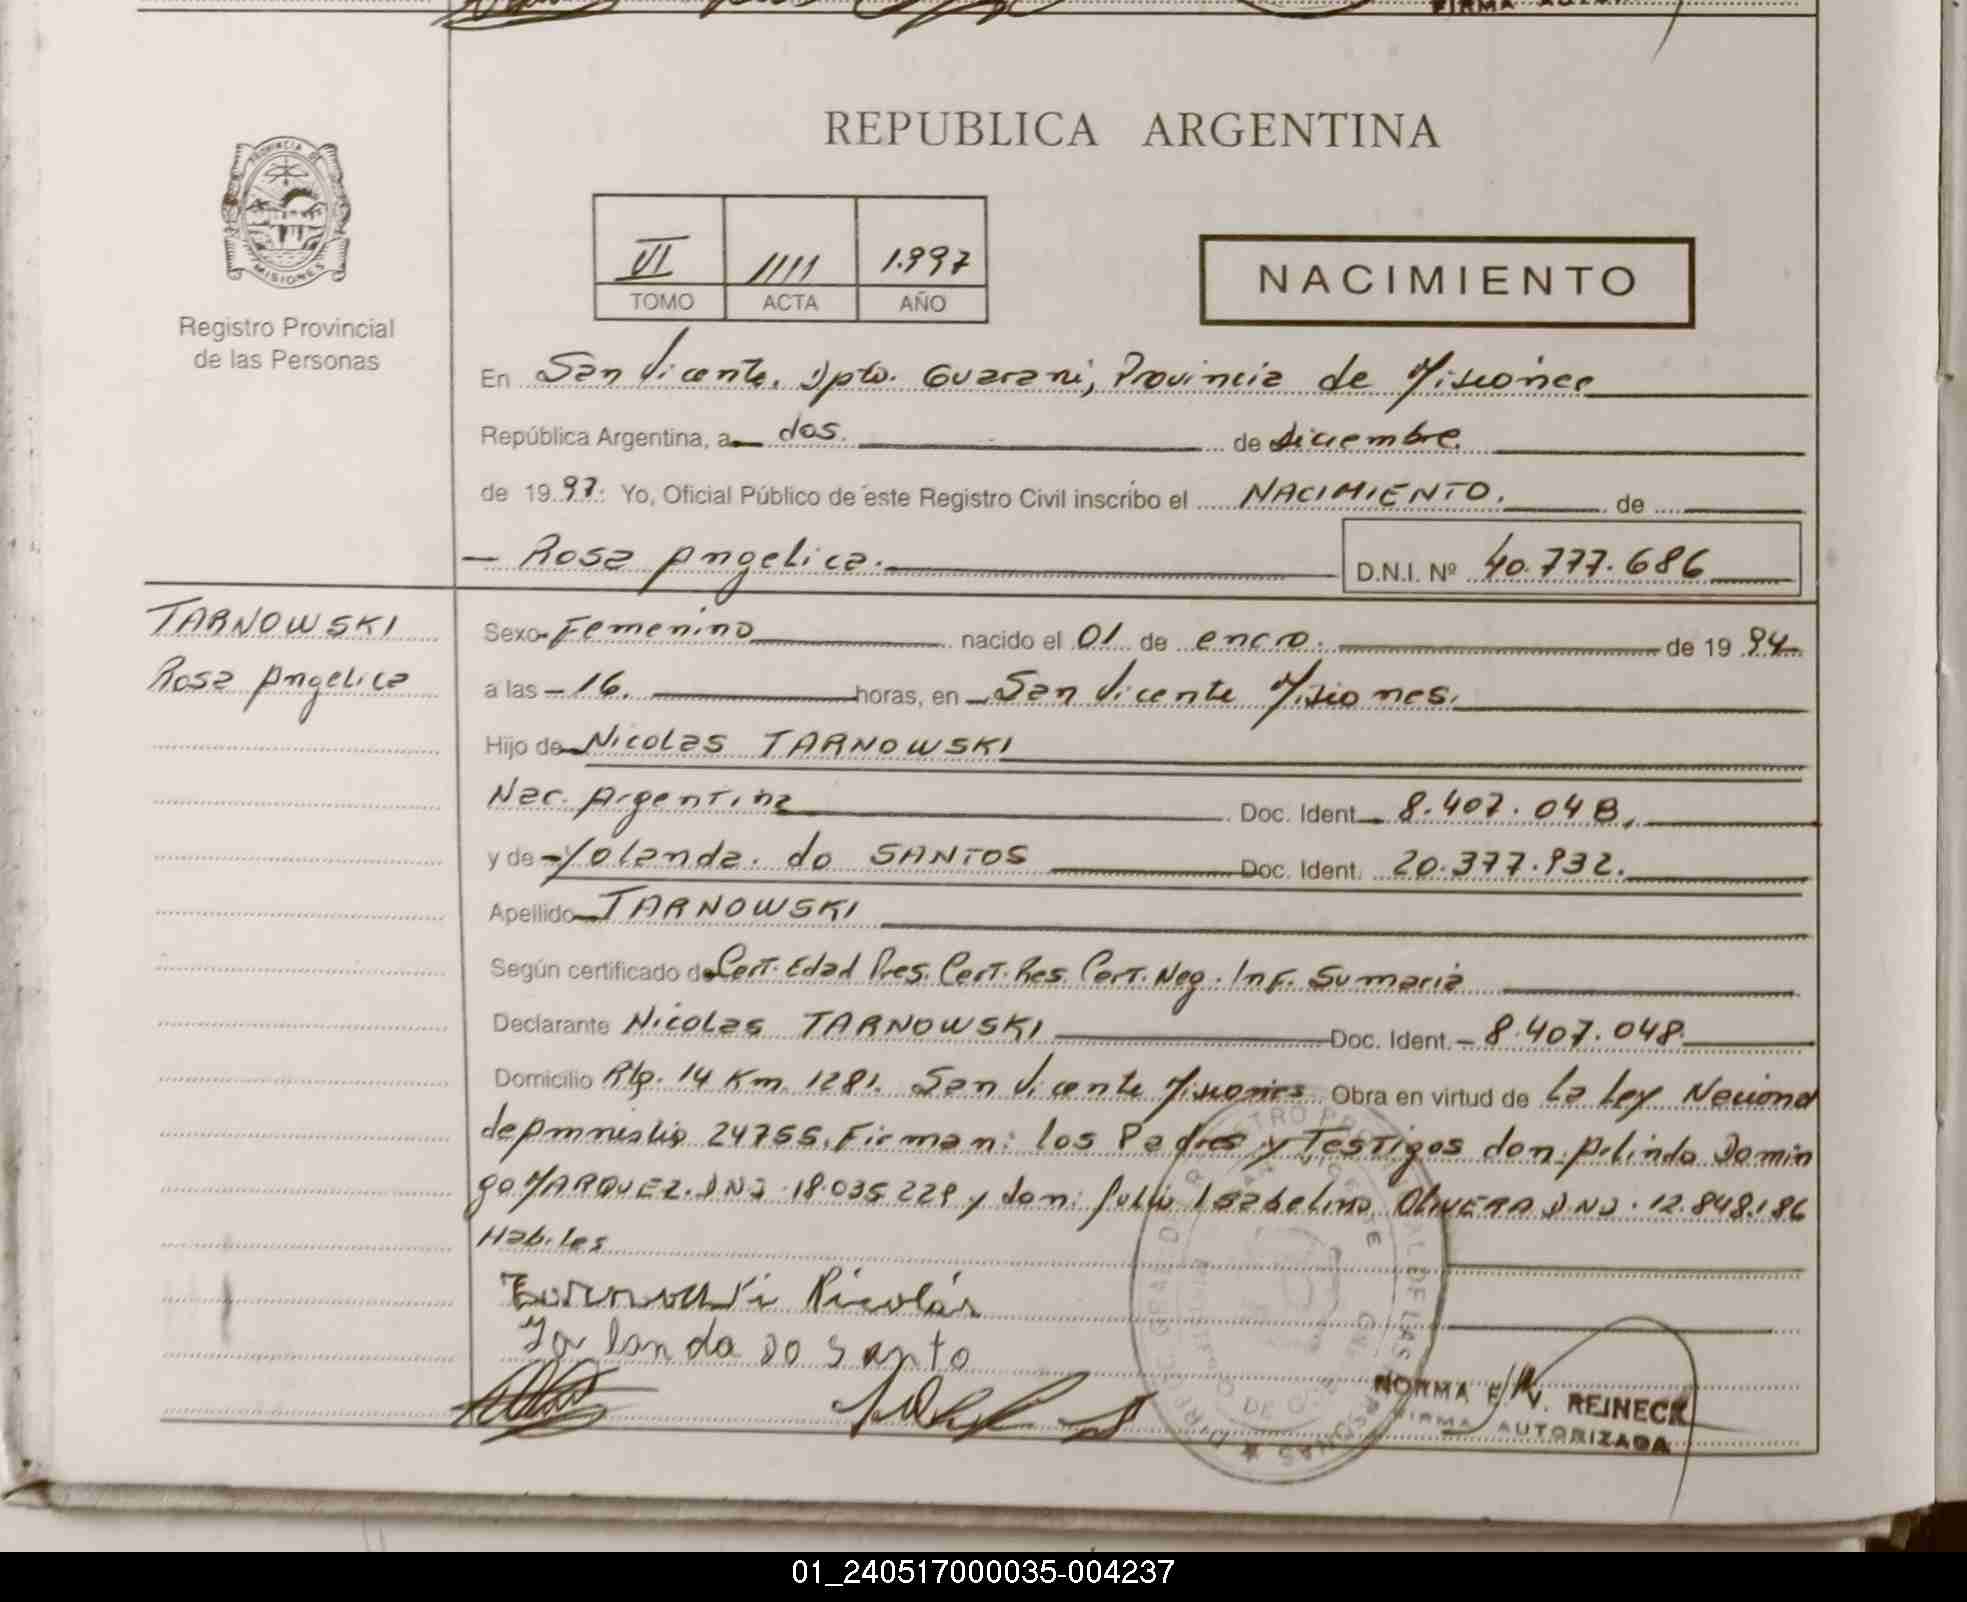 FIRMA AUTOR
REPUBLICA ARGENTINA
PROVINCIA DE
MISIONES
Registro Provincial
de las Personas
VI 1111 1.997
TOMO ACTA AÑO
NACIMIENTO
En San Vicente, Dpto. Guarani, Provincia de Misiones
República Argentina, a dos. de diciembre.
de 19 97. Yo, Oficial Público de este Registro Civil inscribo el NACIMIENTO. de
Rosa Angelica. D.N.I. Nº 40.777.686
TARNOWSKI
Rosa Angelica
Sexo Femenino nacido el 01 de enero. de 19 94
a las 16. horas, en San Vicente Misiones.
Hijo de Nicolas TARNOWSKI
Nac. Argentina Doc. Ident. 8.407.048.
y de Yolanda. do SANTOS Doc. Ident. 20.377.932.
Apellido TARNOWSKI
Según certificado de Cert. Edad Pres. Cert. Res. Cert. Neg. Inf. Sumaria
Declarante Nicolas TARNOWSKI Doc. Ident. 8.407.048.
Domicilio Rta. 14 Km 1281. San Vicente Misiones Obra en virtud de La Ley Nacional
de Amnistia 24755. Firman: los Padres y Testigos don: Arlindo Domin
go MARQUEZ. DNI. 18.035.229 y don: Julio Isabelino OLIVERA DNI. 12.848.186
Habiles
Tarnowski Nicolás
Yolanda Do Santo
NORMA E. V. REINECK
FIRMA AUTORIZADA
01_240517000035-004237